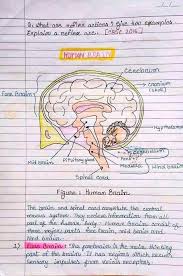 Q. What are reflex actions? Give two examples.
Explain a reflex arc. [CBSE 2016]
HUMAN BRAIN
Cerebrum
Cranium
(skull)
Fore Brain
Hypothalamus
Mid brain
Pituitary gland
Pons
Medulla
Hind Brain
Spinal cord
Figure : Human Brain
The brain and spinal cord constitute the central
nervous system. They receive information from all
part of the human body. Human brain consist of
three major parts fore brain, mid brain and
hind brain.
1) Fore Brain: The forebrain is the main thinking
part of the brain. It has regions which receive
sensory impulses from various receptors.